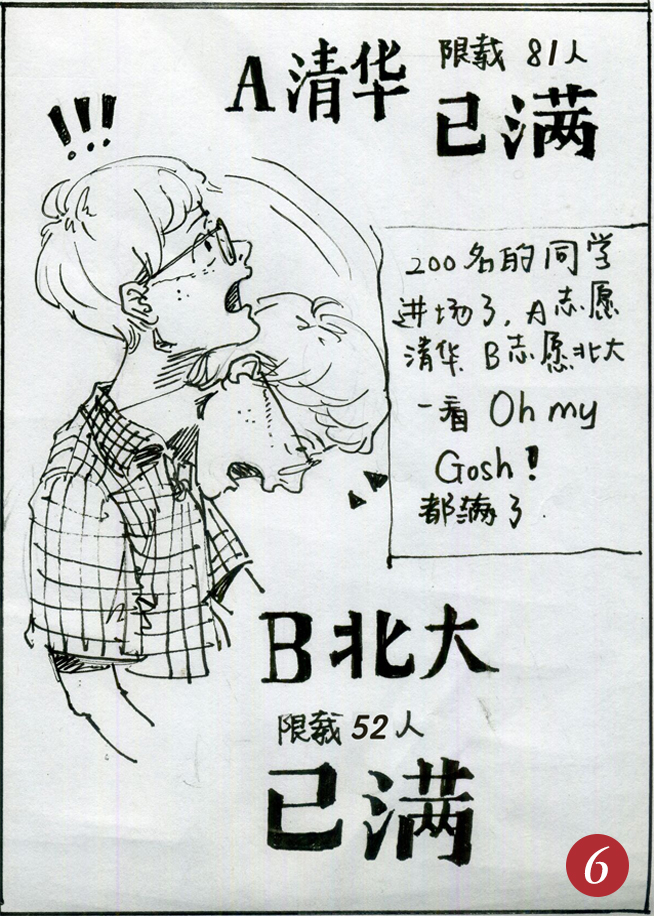 A清华
限载 81人
已满
!!!
200名的同学
进场了,A志愿
清华 B志愿北大
一看 Oh my
Gosh!
都满了
B北大
限载 52人
已满
6